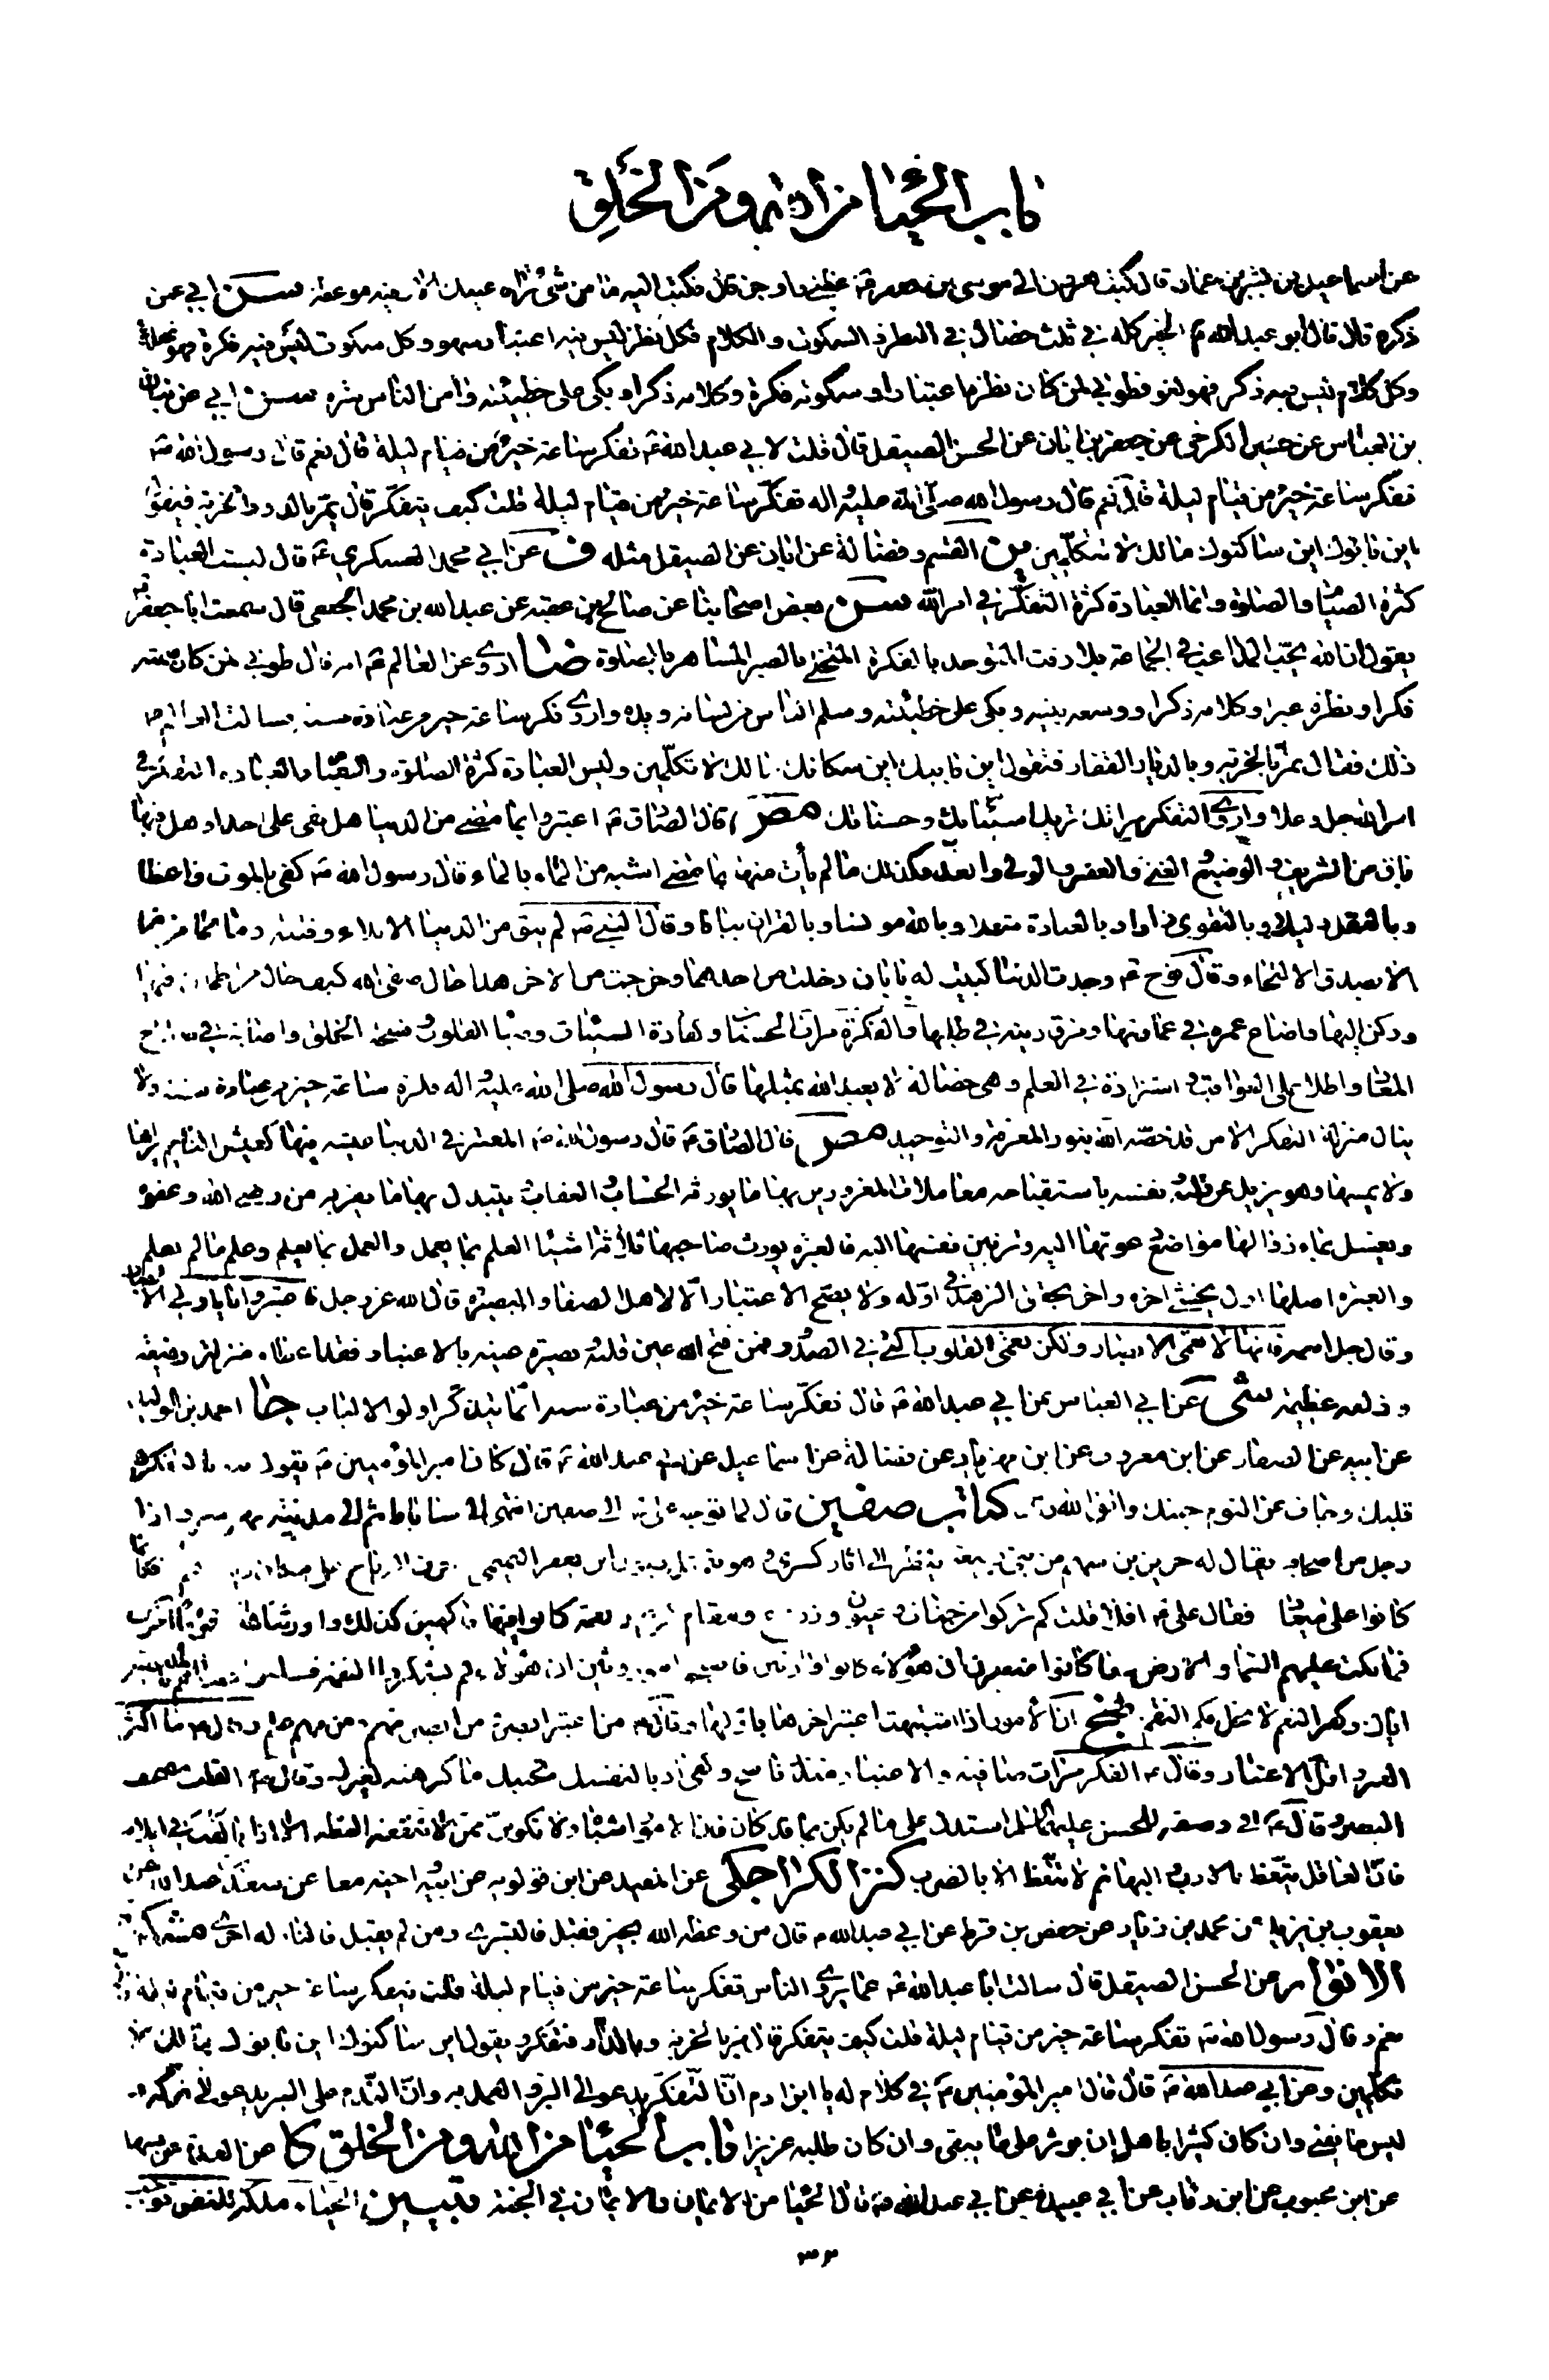 باب الحياء من الله ومن الخلق
عن اسماعيل بن بشير بن عمار قال كتب هرون الى موسى بن جعفر ع عظنى واوجز قال فكتب اليه ما من شئ تراه عينك الا وفيه موعظة سن ابي عمن
ذكره قال قال ابو عبد الله ع الخير كله في ثلث خصال في النظر والسكوت والكلام فكل نظر ليس فيه اعتبار سهو وكل سكوت ليس فيه فكرة فهو غفلة
وكل كلام ليس فيه ذكر فهو لغو فطوبى لمن كان نظره اعتبارا وسكوته فكرة وكلامه ذكرا وبكى على خطيئته وامن الناس شره سن ابي عن بنان
بن العباس عن حسين الكرخي عن جعفر بن ابان عن الحسن الصيقل قال قلت لابي عبد الله ع تفكر ساعة خير من قيام ليلة قال نعم قال رسول الله ص
تفكر ساعة خير من قيام ليلة قال نعم قال رسول الله صلى الله عليه واله تفكر ساعة خير من قيام ليلة قلت كيف يتفكر قال يمر بالدور الخربة فيقول
اين بانوك اين ساكنوك مالك لا تتكلمين ين القسم وفضالة عن ابان عن الصيقل مثله ف عن ابي محمد العسكري ع قال ليست العبادة
كثرة الصيام والصلوة وانما العبادة كثرة التفكر في امر الله سن بعض اصحابنا عن صالح بن عقبة عن عبد الله بن محمد الجعفي قال سمعت ابا جعفر ع
يقول ان الله يحب المداعب في الجماعة بلا رفث المتوحد بالفكرة المتخلي بالصبر المساهر بالصلوة ضا اروى عن العالم ع انه قال طوبى لمن كان صمته
فكرا ونظره عبرا وكلامه ذكرا ووسعه بيته وبكى على خطيئته وسلم الناس من لسانه ويده واروى فكر ساعة خير من عبادة سنة فسالت العالم عن
ذلك فقال تمر بالخربة وبالديار القفار فتقول اين بانيك اين سكانك مالك لا تكلمين وليس العبادة كثرة الصلوة والصيام والعبادة التفكر في
امر الله جل وعلا واروى التفكر مراتك تريك سيئاتك وحسناتك مص قال الصادق ع اعتبروا بما مضى من الدنيا هل بقى على احد او هل فيها
باق من الشريف والوضيع والغنى والفقير والولى والعدو فكذلك ما لم يأت منها بما مضى اشبه من الماء بالماء قال رسول الله ص كفى بالموت واعظا
وبالعقل دليلا وبالتقوى زادا وبالعبادة شغلا وبالله مونسا وبالقران بيانا وقال النبي ص لم يبق من الدنيا الا بلاء وفتنة وما نجا من نجا
الا بصدق الالتجاء وقال نوح ع وجدت الدنيا كبيت له بابان دخلت من احدهما وخرجت من الاخر هذا حال صفى الله كيف حال من اطمأن فيها
وركن اليها واضاع عمره في عمارتها ومزق دينه في طلبها والفكرة مرات الحسنات وكفارة السيئات وضياء القلوب وفسحة الخلق واصابة في صلاح
المعاد واطلاع على العواقب واستزادة في العلم وهى خصلة لا يعبد الله بمثلها قال رسول الله صلى الله عليه واله فكرة ساعة خير من عبادة سنة ولا
ينال منزلة التفكر الا من قد خصه الله بنور المعرفة والتوحيد مص قال الصادق ع قال رسول الله ص المعتبر في الدنيا عيشه فيها كعيش النائم يراها
ولا يمسها وهو يزيل عن قلبه ونفسه باستقباحه معاملات المغرورين بها ما يورثه الحساب والعقاب يتبدل بها ما يقربه من رضى الله وعفوه
ويغسل بماء زوالها مواضع دعوتها اليه وتزيين نفسها اليه فالعبرة يورث صاحبها ثلاثة اشياء العلم بما يعمل والعمل بما يعلم وعلم ما لم يعلم
والعبرة اصلها اول يخشى اخره واخر يحقق الزهد في اوله ولا يصح الاعتبار الا لاهل الصفا والبصيرة قال الله عز وجل فاعتبروا يا اولي الابصار
وقال جل اسمه فانها لا تعمى الابصار ولكن تعمى القلوب التي في الصدور فمن فتح الله عين قلبه وبصيرة عينه بالاعتبار فقد اعطاه منزلة رفيعة
وزلفة عظيمة شى عن ابي العباس عن ابي عبد الله ع قال تفكر ساعة خير من عبادة سنة انما يتذكر اولو الالباب جا احمد بن الوليد
عن ابيه عن الصفار عن ابن معروف عن ابن مهزيار عن فضالة عن اسماعيل عن ابي عبد الله ع قال كان امير المؤمنين ع يقول نبه بالتفكر
قلبك وجاف عن النوم جنبك واتق الله ربك كتاب صفين قال لما توجه على ع الى صفين انتهى الى ساباط ثم الى مدينة بهرسير واذا
رجل من اصحابه يقال له حريز بن سهم من بنى ربيعة ينظر الى اثار كسرى وهو يتمثل بقول ابن يعفر التميمي جرت الرياح على مكان ديارهم فكانما
كانوا على ميعاد فقال على ع افلا قلت كم تركوا من جنات وعيون وزروع ومقام كريم ونعمة كانوا فيها فاكهين كذلك واورثناها قوما آخرين
فما بكت عليهم السماء والارض وما كانوا منظرين ان هؤلاء كانوا وارثين فاصبحوا موروثين ان هؤلاء لم يشكروا النعمة فسلبوا دنياهم بالمعصية
اياكم وكفر النعم لا تحل بكم النقم نهج ان الامور اذا اشتبهت اعتبر اخرها باولها وقال ع من اعتبر ابصر ومن ابصر فهم ومن فهم علم وقال ع ما اكثر
العبر واقل الاعتبار وقال ع الفكر مرات صافية والاعتبار منذر ناصح وكفى ادبا لنفسك تجنبك ما كرهته لغيرك وقال ع القلب مصحف
البصر وقال ع في وصيته للحسن عليهما السلام استدل على ما لم يكن بما قد كان فان الامور اشباه ولا تكونن ممن لا تنفعه العظة الا اذا بالغت في ايلامه
فان العاقل يتعظ بالادب والبهائم لا تتعظ الا بالضرب كنز الكراجكى عن المفيد عن ابن قولويه عن ابيه واخيه معا عن سعد عن
يعقوب بن يزيد عن محمد بن زياد عن حفص بن قرط عن ابي عبد الله ع قال من وعظه الله بخير فقبل فالبشرى ومن لم يقبل فالنار له احرى مشكوة
الانوار عن الحسن الصيقل قال سالت ابا عبد الله ع عما يروى الناس تفكر ساعة خير من قيام ليلة قلت تفكر ساعة خير من قيام ليلة قال
نعم وقال رسول الله ص تفكر ساعة خير من قيام ليلة قلت كيف يتفكر قال يمر بالخربة وبالدار فيتفكر ويقول اين ساكنوك اين بانوك مالك لا
تتكلمين وعن ابي عبد الله ع قال قال امير المؤمنين ع في كلام له يا ابن ادم ان التفكر يدعو الى البر والعمل به وان الندم على الشر يدعو الى تركه و
ليس ما يفنى وان كان كثيرا باهل ان يؤثر على ما يبقى وان كان طلبه عزيزا باب الحياء من الله ومن الخلق كا عن العدة عن سهل
عن ابن محبوب عن ابن رئاب عن ابي عبيدة عن ابي عبد الله ع قال الحياء من الايمان والايمان في الجنة تبيين الحياء ملكة للنفس توجب
٣٣